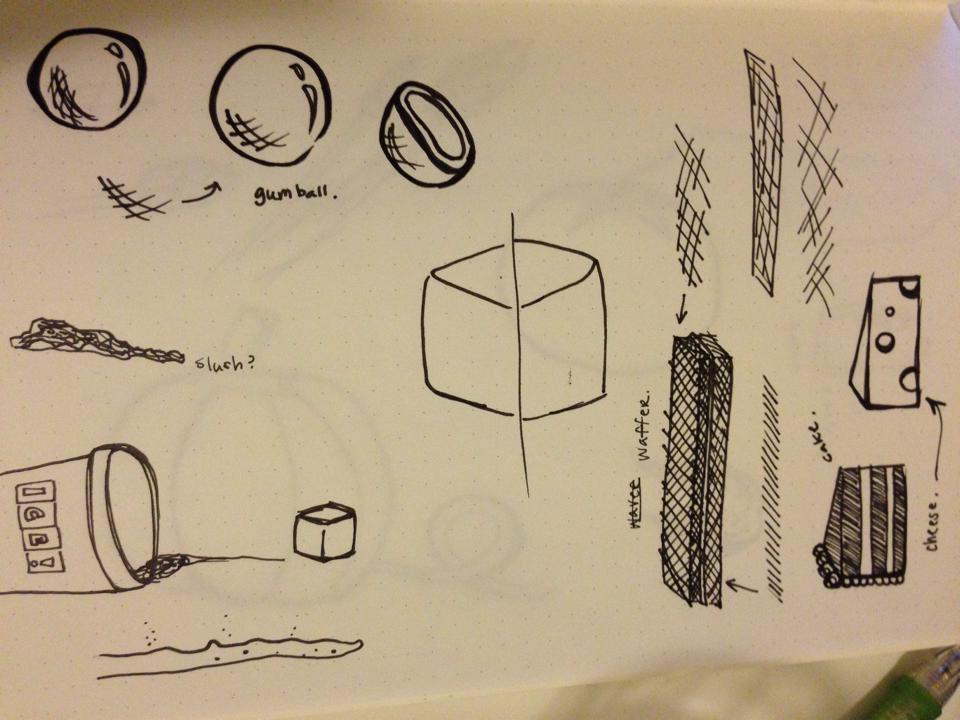 gumball.
slush?
ICE!
waffer.
cake.
cheese.